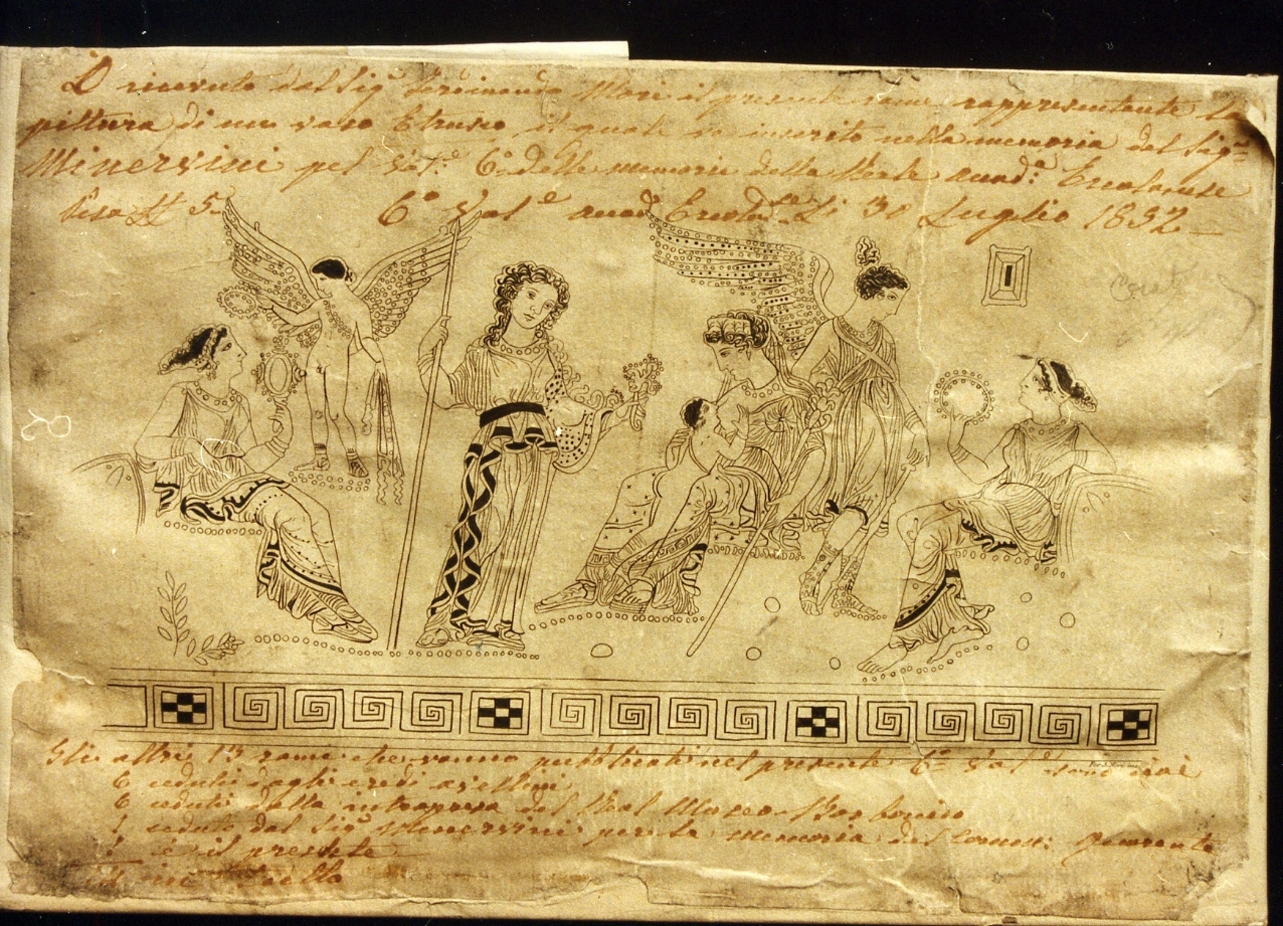 O ricevuto dal Sigr Ferdinando Mori il presente rame rappresentante la
pittura di un vaso Etrusco il quale va inserito nella memoria del Sigr
Minervini pel Vole 6o delle memorie della Reale Accad: Ercolanese
6o Vole accad Ercolse Li 30 Luglio 1852
Gli altri 13 rami che vanno pubblicati nel presente 6o Vole sono cioè
6 ceduti dagli eredi Avellini
6 ceduti dalla intrapresa del Real Museo Borbonico
1 ceduto dal Sigr Minervini per la memoria del
1 è il presente